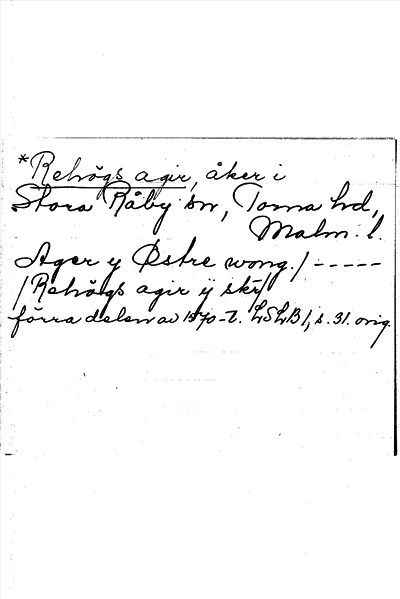 *Rehögs agir, åker i
Stora Råby sn, Torna hd,
Malm. l.
Ager y Østre wong./-----
/Rehögs agir ij skr/
förra delen av 1570-t. LSLB 1, s. 31. orig.